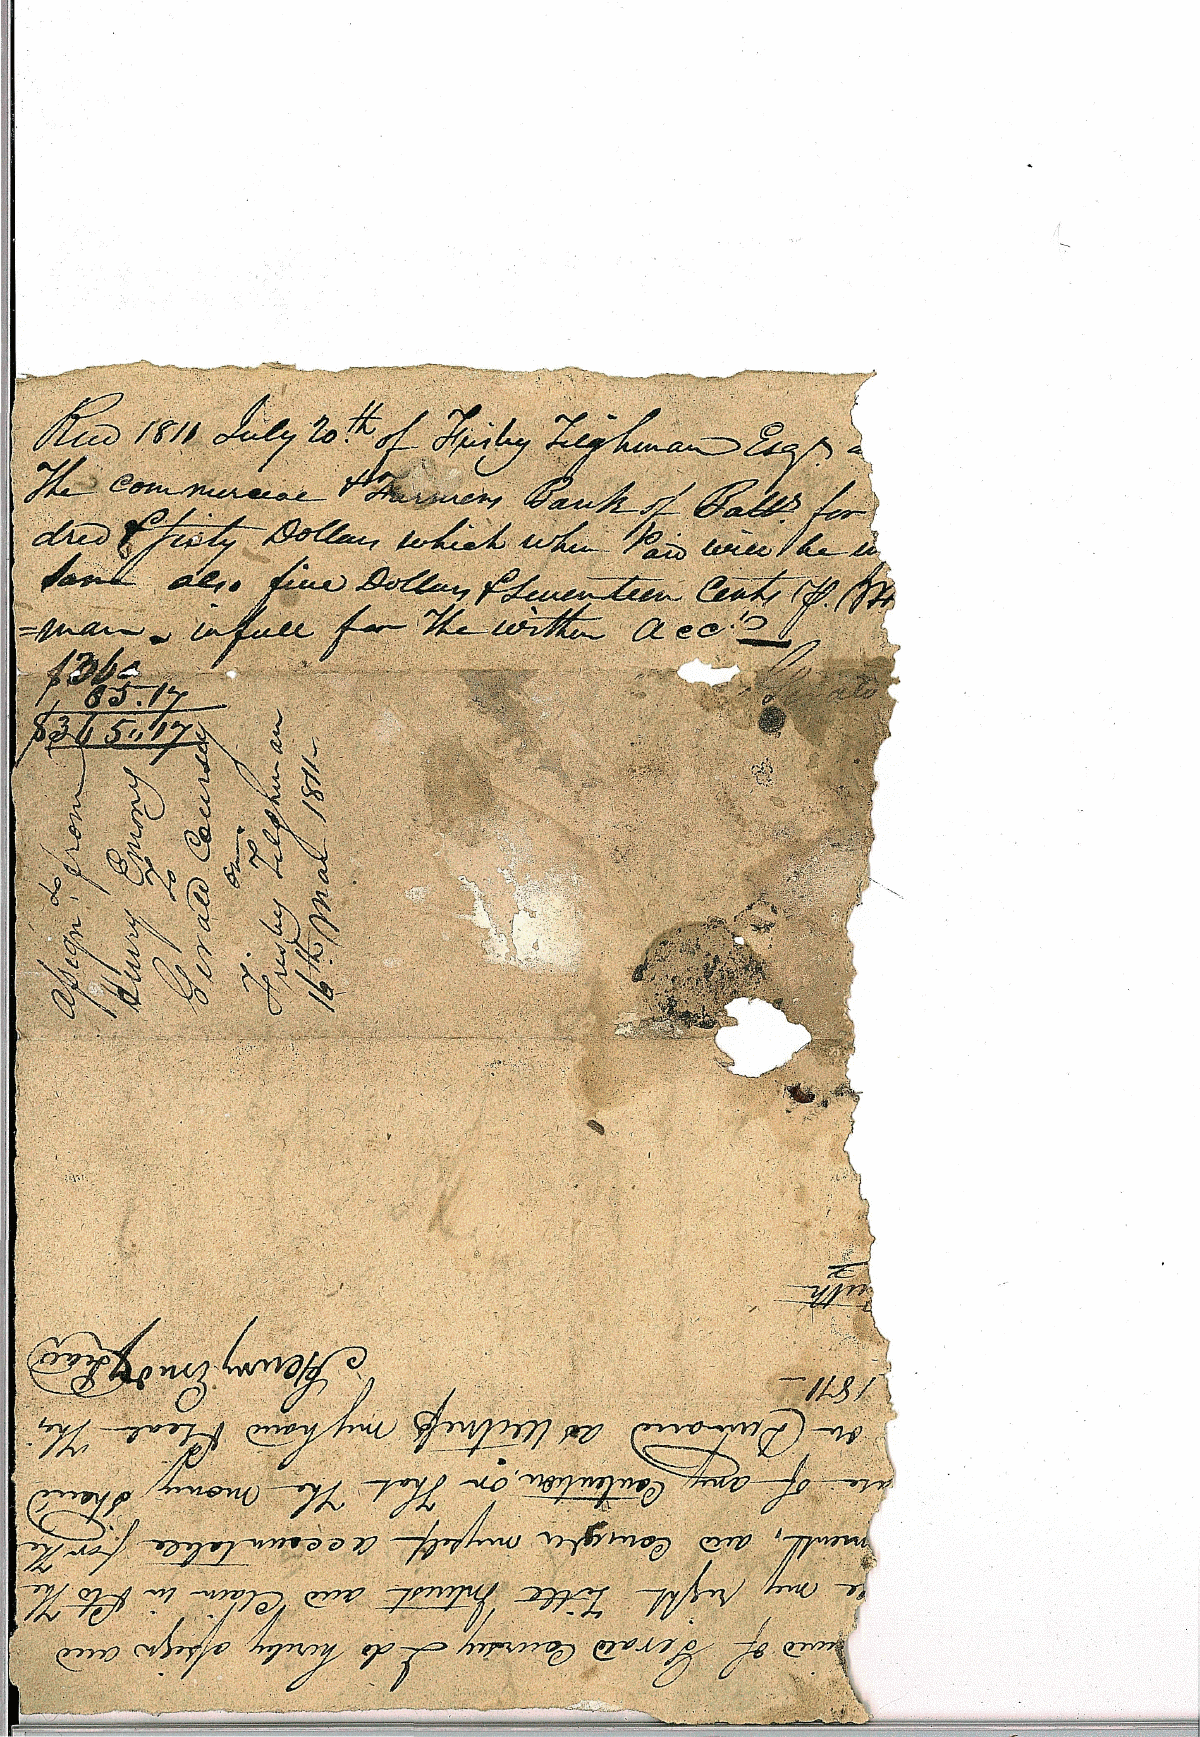 Recd 1811 July 20th of Frisby Tilghman Esqr a
The commerciae & Farmers Bank of Balte for
dred & sixty Dollars which when Paid will be in
same also five Dollars & Seventeen Cents
=man - in full for The within acct
$360
05.17
$365,,17
assignt from
Henry Emory
to
Gerald Coursey
on
F. Frisby Tilghman
16th Mar 1811
of Gerald Coursey I do hereby assign and
my right Title Intrust and Claim in & to the
ment, and consider myself accountable for the
of any Contention, or that the money, Should
on Demand as Witness my hand & Seal This
1811 -
Henry Emory Seal